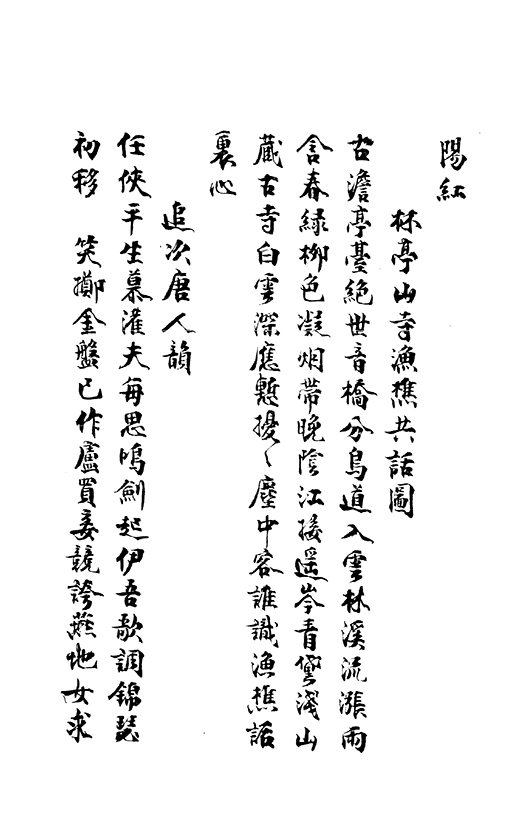 陽紅
林亭山寺漁樵共話圖
古澹亭臺絕世音橋分鳥道入雲林溪流漲雨
含春綠柳色凝烟帶晚陰江接遥岑青黛淺山
藏古寺白雲深應慙擾〻塵中客誰識漁樵話
裏心
追次唐人韻
任俠平生慕灌夫每思鳴劍起伊吾歌調錦瑟
初移 笑擲金盤已作盧買妾競誇燕地女求